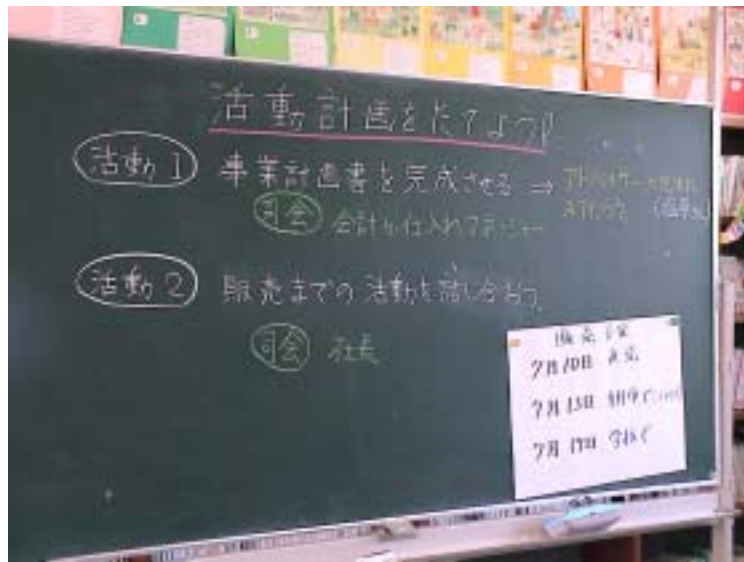 活動計画をたてよう!
活動1 事業計画書を完成させる ⇒ アドバイザー
司会 会計か仕入れマネージャー
活動2 販売までの活動を話し合おう
司会 社長
販売予定
7月10日
7月13日
7月17日 学校で